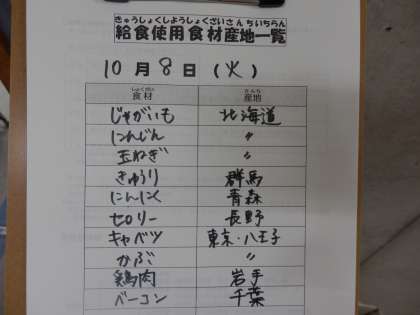 きゅうしょくしようしょくざいさんちいちらん
給食使用食材産地一覧
10月8日（火）
しょくざい さんち
食材 産地
じゃがいも 北海道
にんじん 〃
玉ねぎ 〃
きゅうり 群馬
にんにく 青森
セロリー 長野
キャベツ 東京・八王子
かぶ 〃
鶏肉 岩手
ベーコン 千葉